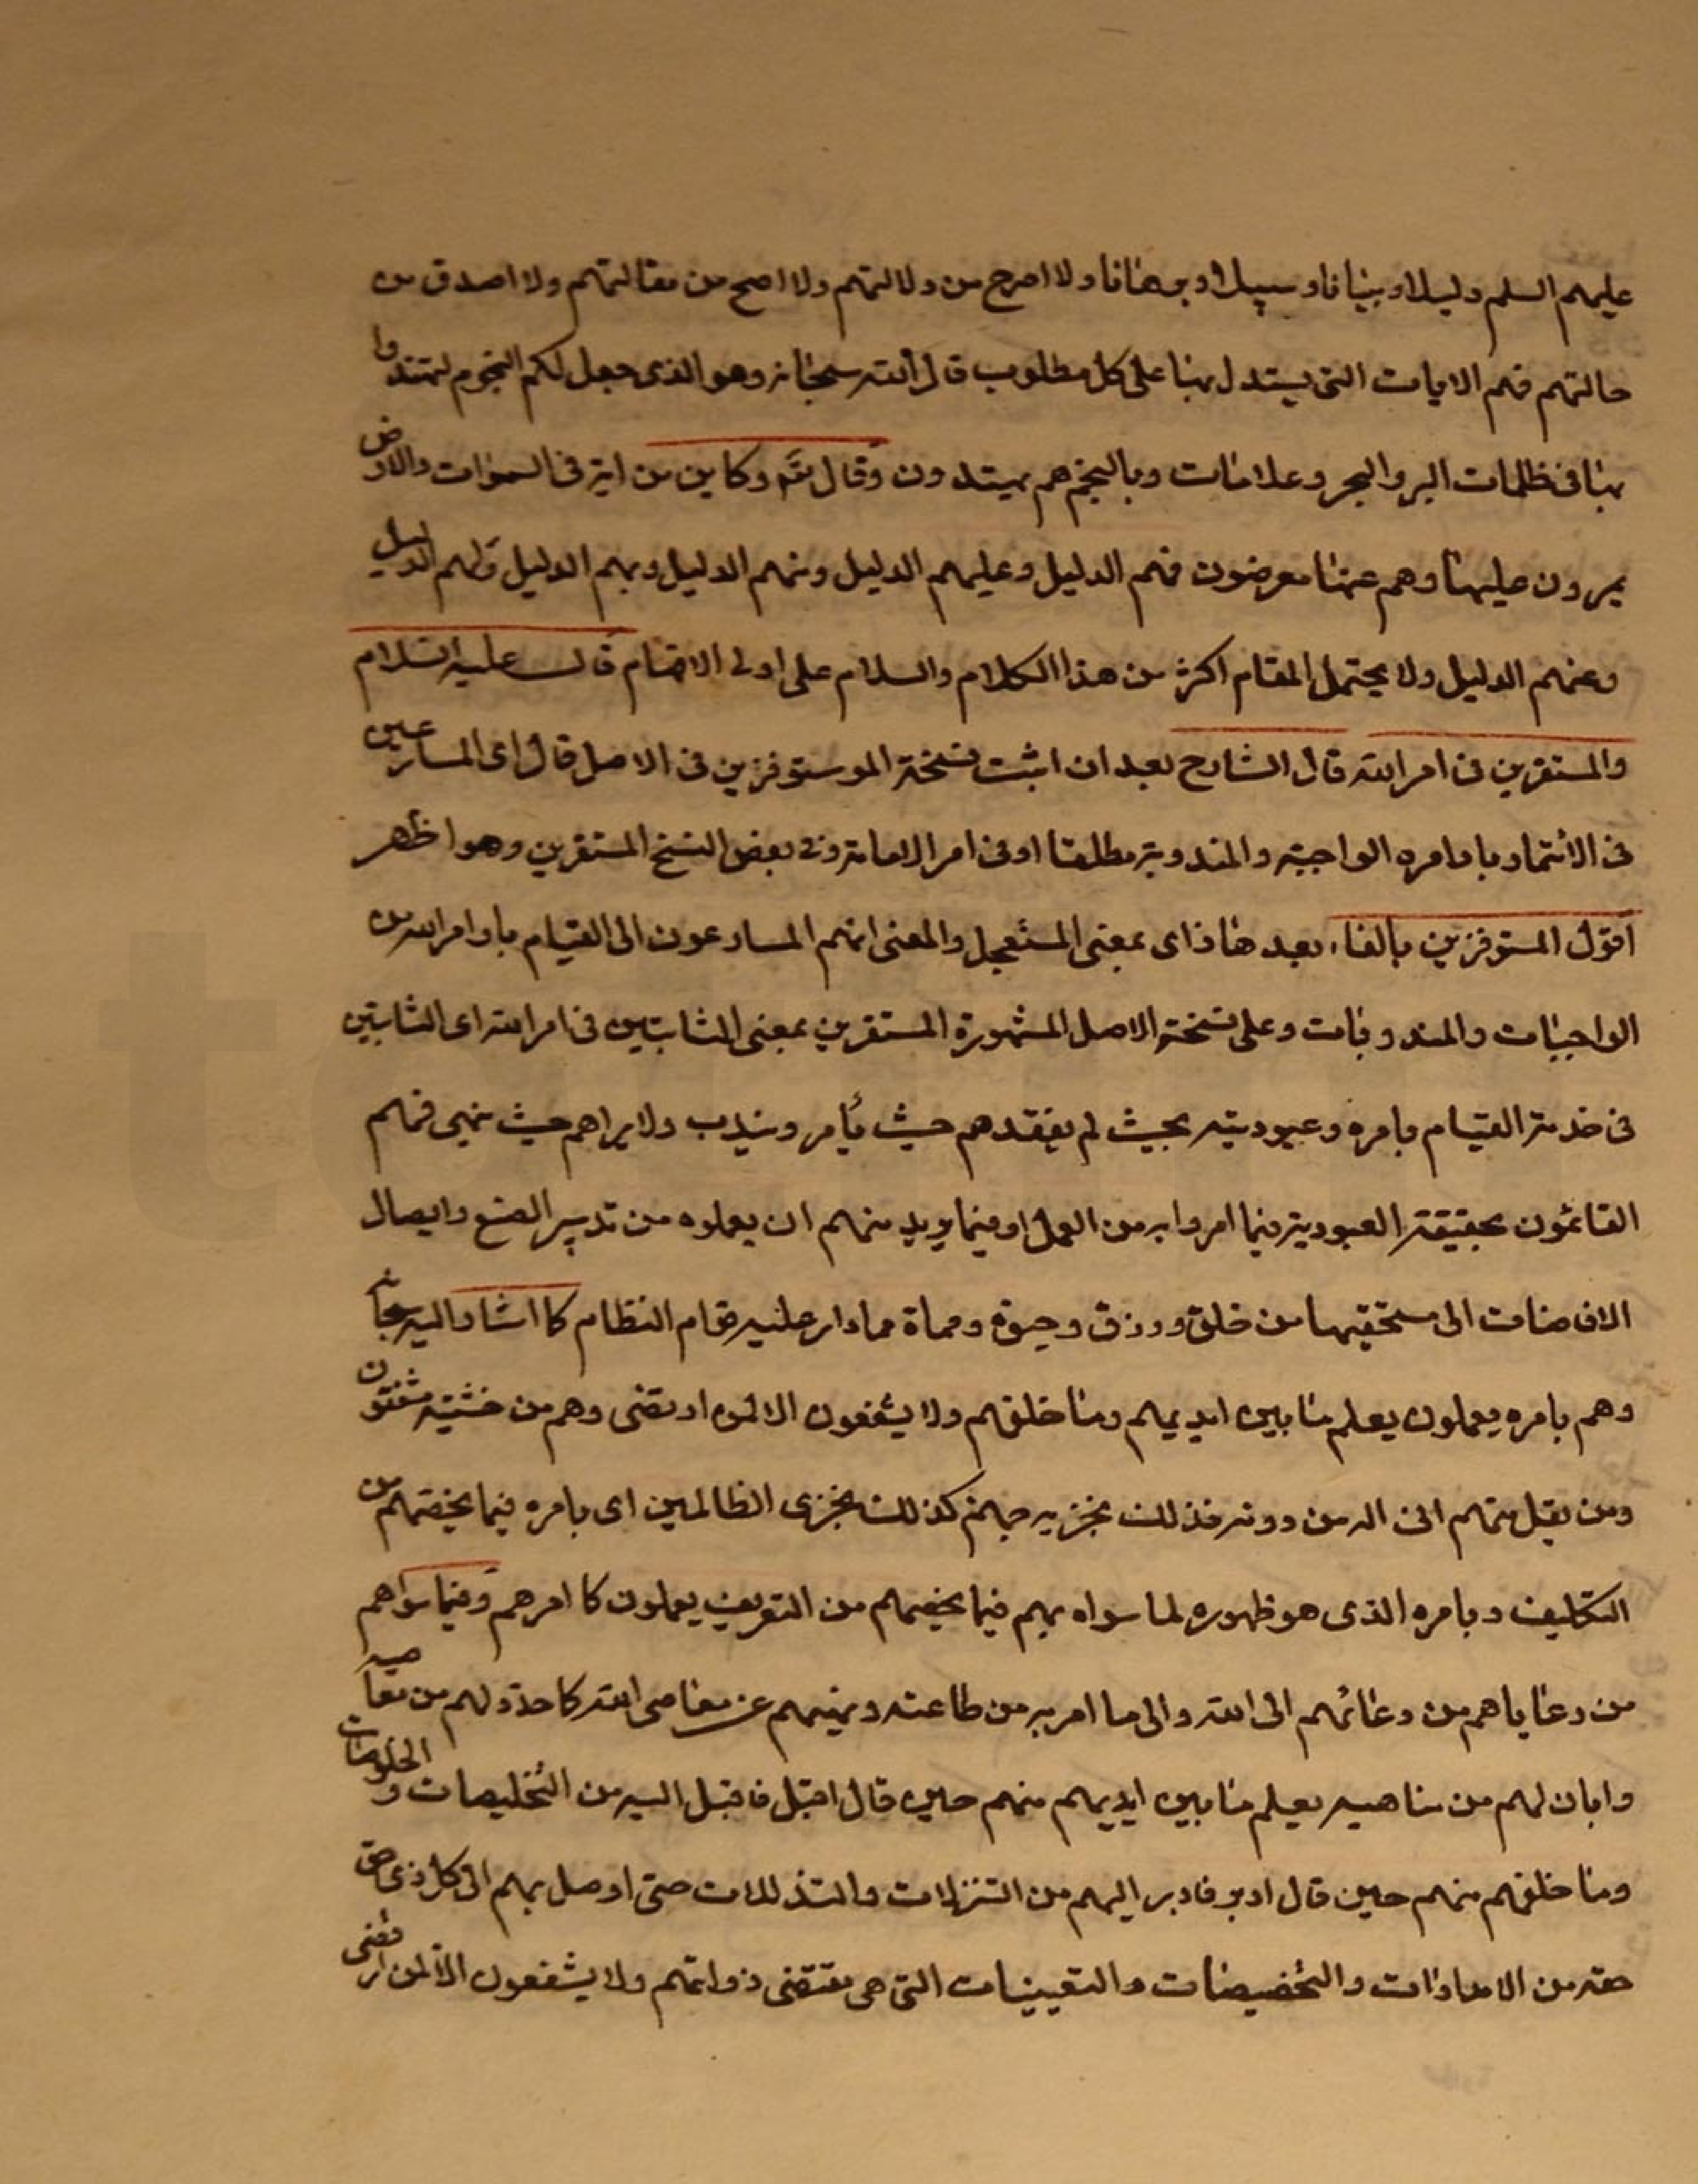 عليهم السلم دليلا وبيانا وسبيلا وبرهانا ولا اصرح من دلالتهم ولا اصح من مقالتهم ولا اصدق من
حالتهم فهم الايات التي يستدل بها على كل مطلوب قال الله سبحانه وهو الذي جعل لكم النجوم لتهتدوا
بها في ظلمات البر والبحر وعلامات وبالنجم هم يهتدون وقال تع وكاين من اية في السموات والارض
يمرون عليها وهم عنها معرضون فهم الدليل وعليهم الدليل ومنهم الدليل وبهم الدليل ولهم الدليل
وعنهم الدليل ولا يحتمل المقام اكثر من هذا الكلام والسلام على اولى الافهام قال عليه السلام
والمستقرين في امر الله قال الشارح بعد ان اثبت نسخة الموستوفزين في الاصل قال اى المسارعين
في الائتمار باوامره الواجبة والمندوبة مطلقا او في امر الامامة وفي بعض النسخ المستقرين وهو اظهر
اقول المستوفزين بالفاء بعدها زاى بمعنى المستعجل والمعنى انهم المسارعون الى القيام باوامر الله من
الواجبات والمندوبات وعلى نسخة الاصل المشهورة المستقرين بمعنى الثابتين في امر الله اى الثابتين
في خدمة القيام بامره وعبوديته بحيث لم يفقدهم حيث يأمر ويندب ولا يراهم حيث ينهى فهم
القائمون بحقيقة العبودية فيما امروا به من العمل او فيما يريد منهم ان يعملوه من تدبير الصنع وايصال
الافاضات الى مستحقيها من خلق ورزق وحيوة ومماة مما دار عليه قوام النظام كما اشار اليه سبحانه
وهم بامره يعملون يعلم ما بين ايديهم وما خلفهم ولا يشفعون الا لمن ارتضى وهم من خشيته مشفقون
ومن يقل منهم انى اله من دونه فذلك نجزيه جهنم كذلك نجزى الظالمين اى بامره فيما يخصهم من
التكليف وبامره الذى هو ظهوره لما سواه بهم فيما يخصهم من التعريف يعملون كما امرهم وفيما سواهم
من رعاياهم من دعائهم الى الله والى ما امر به من طاعته ونهيهم عن معاصى الله كما حدد لهم من معاصيه
وابان لهم من مناهيه يعلم ما بين ايديهم منهم حين قال اقبل فاقبل اليه من التخليصات و الخلوصات
وما خلفهم منهم حين قال ادبر فادبر اليهم من التنزلات والتذللات حتى اوصل بهم الى كل ذى حق
حقه من الامدادات والتخصيصات والتعيينات التى هى مقتضى ذواتهم ولا يشفعون الا لمن ارتضى